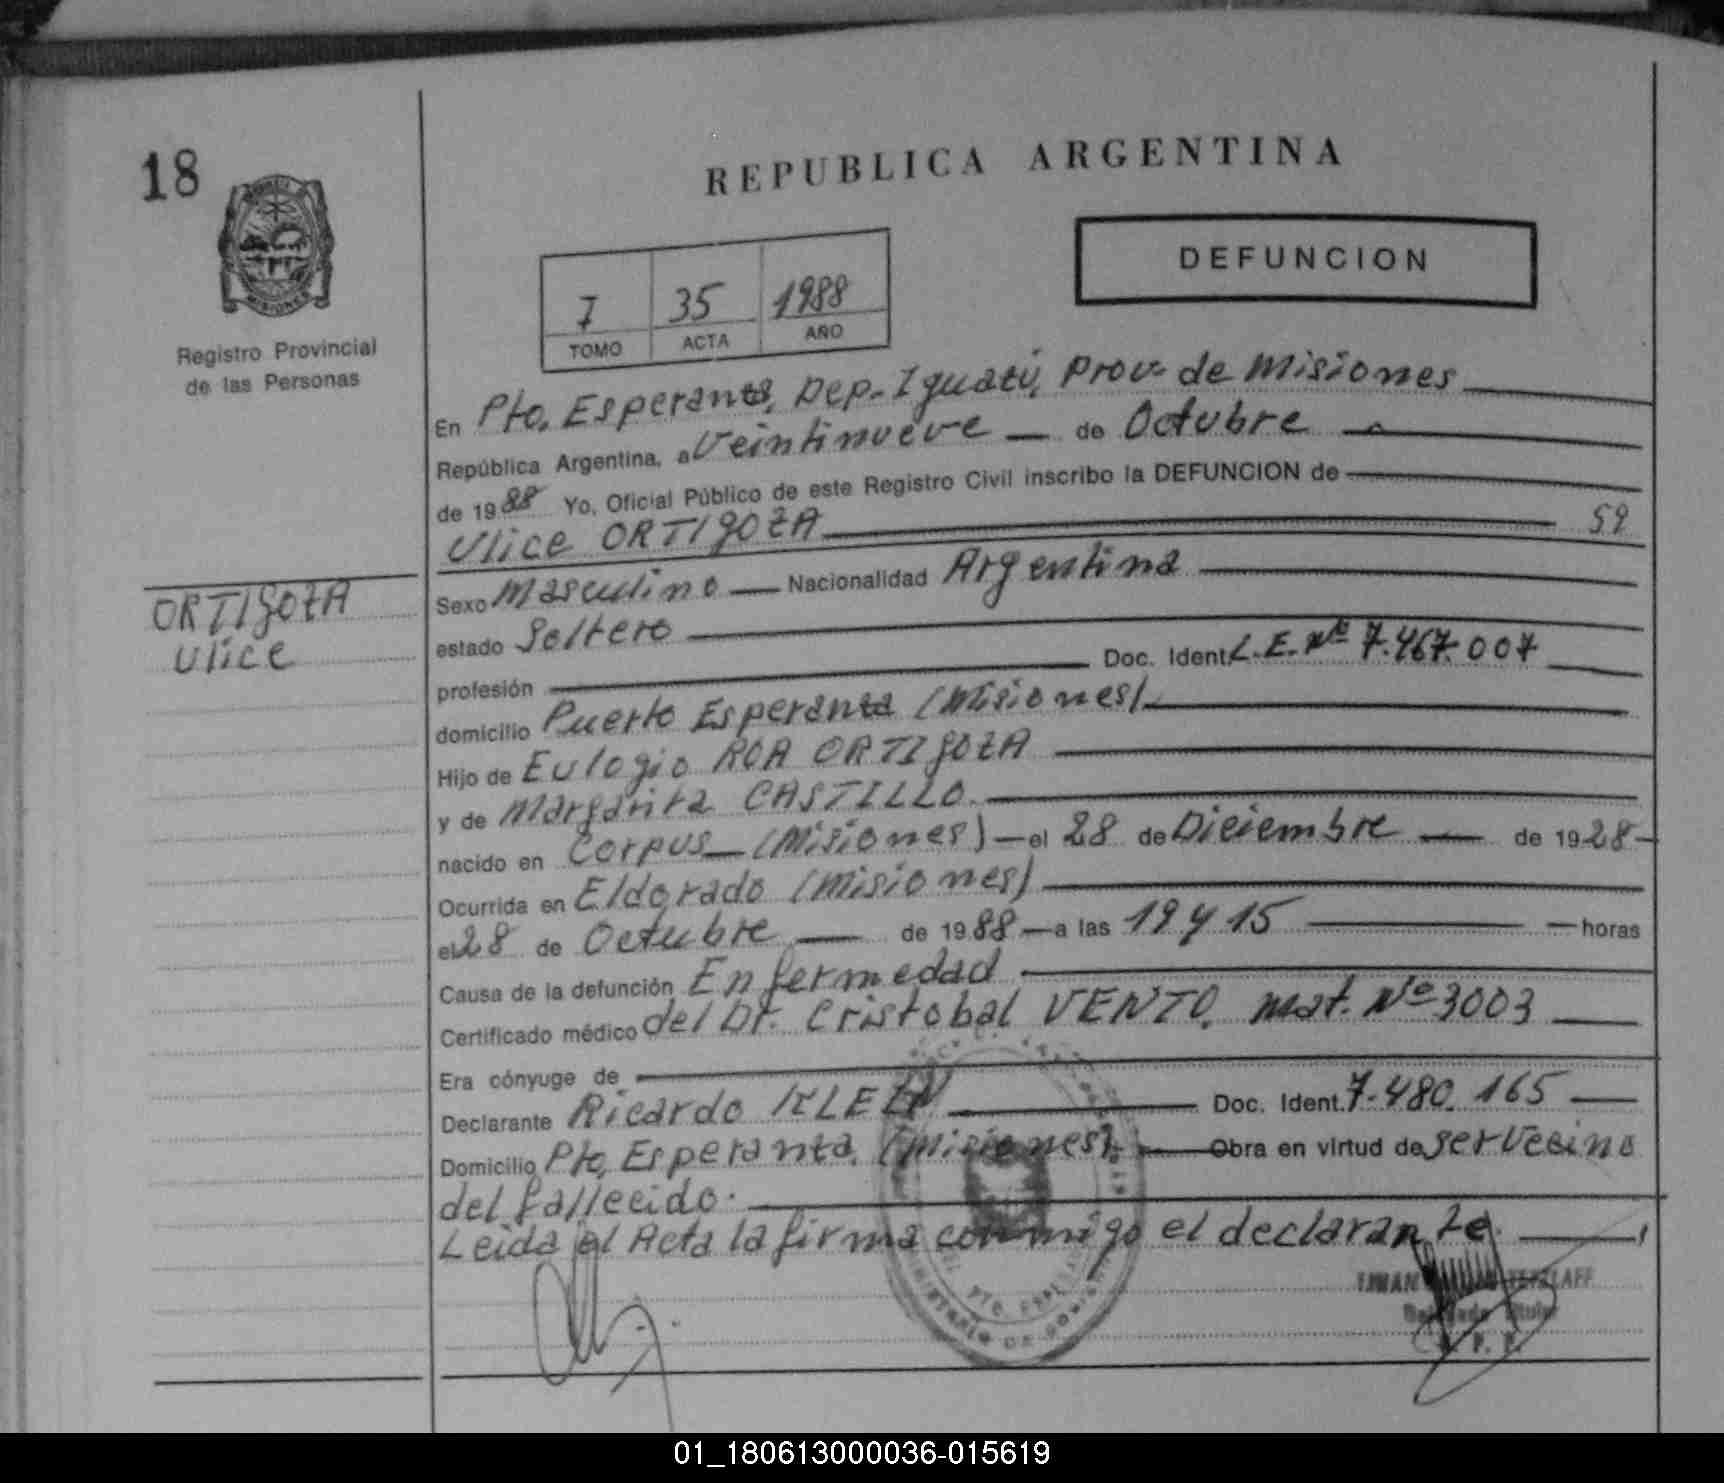 18
REPUBLICA ARGENTINA
DEFUNCION
7 35 1988
TOMO ACTA AÑO
MISIONES
Registro Provincial
de las Personas
En Pto. Esperanza, Dep. Iguazú, Prov. de Misiones
República Argentina, a Veintinueve de Octubre
de 1988 Yo, Oficial Público de este Registro Civil inscribo la DEFUNCION de
Ulice ORTIGOZA 59
ORTIGOZA
Ulice
Sexo Masculino Nacionalidad Argentina
estado Soltero
profesión Doc. Ident. L.E. Nº 7.467.007
domicilio Puerto Esperanza (Misiones).
Hijo de Eulogio ROA ORTIGOZA
y de Margarita CASTILLO.
nacido en Corpus (Misiones) el 28 de Diciembre de 1928
Ocurrida en Eldorado (Misiones)
el 28 de Octubre de 1988 a las 19 y 15 horas
Causa de la defunción Enfermedad
Certificado médico del Dr. Cristobal VENTO, mat. Nº 3003
Era cónyuge de
Declarante Ricardo KLEIN Doc. Ident. 7.480.165
Domicilio Pto. Esperanza, (Misiones). Obra en virtud de ser vecino
del fallecido.
Leida el Acta la firma conmigo el declarante.
TETZLAFF
Titular
01_180613000036-015619